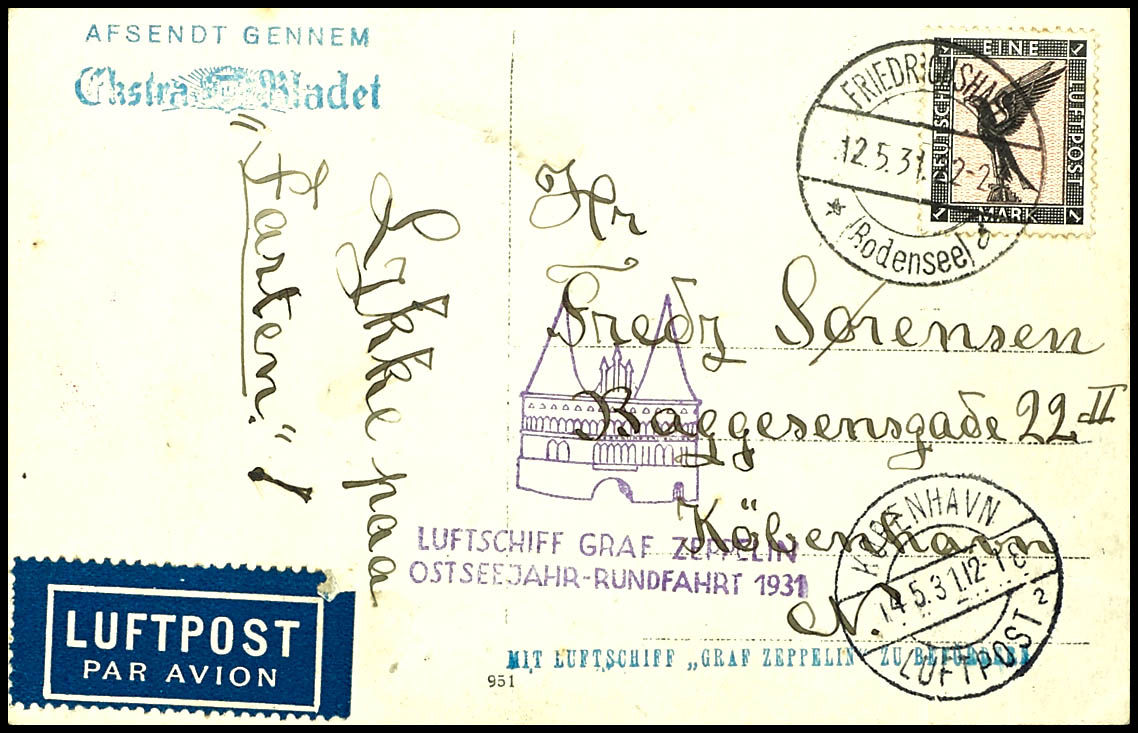 AFSENDT GENNEM
Ekstra Bladet
"Farten."!
Lykke paa
EINE
DEUTSCHE
LUFTPOST
1 MARK 1
FRIEDRICHSHAFEN
12.5.31. 2-
(Bodensee) d
Hr
Fredy Sørensen
Baggesensgade 22 II
Köbenhavn
N.
LUFTSCHIFF GRAF ZEPPELIN
OSTSEEJAHR-RUNDFAHRT 1931
KØBENHAVN
14.5.31.12-18
LUFTPOST 2
MIT LUFTSCHIFF „GRAF ZEPPELIN" ZU BEFÖRDERN
951
LUFTPOST
PAR AVION